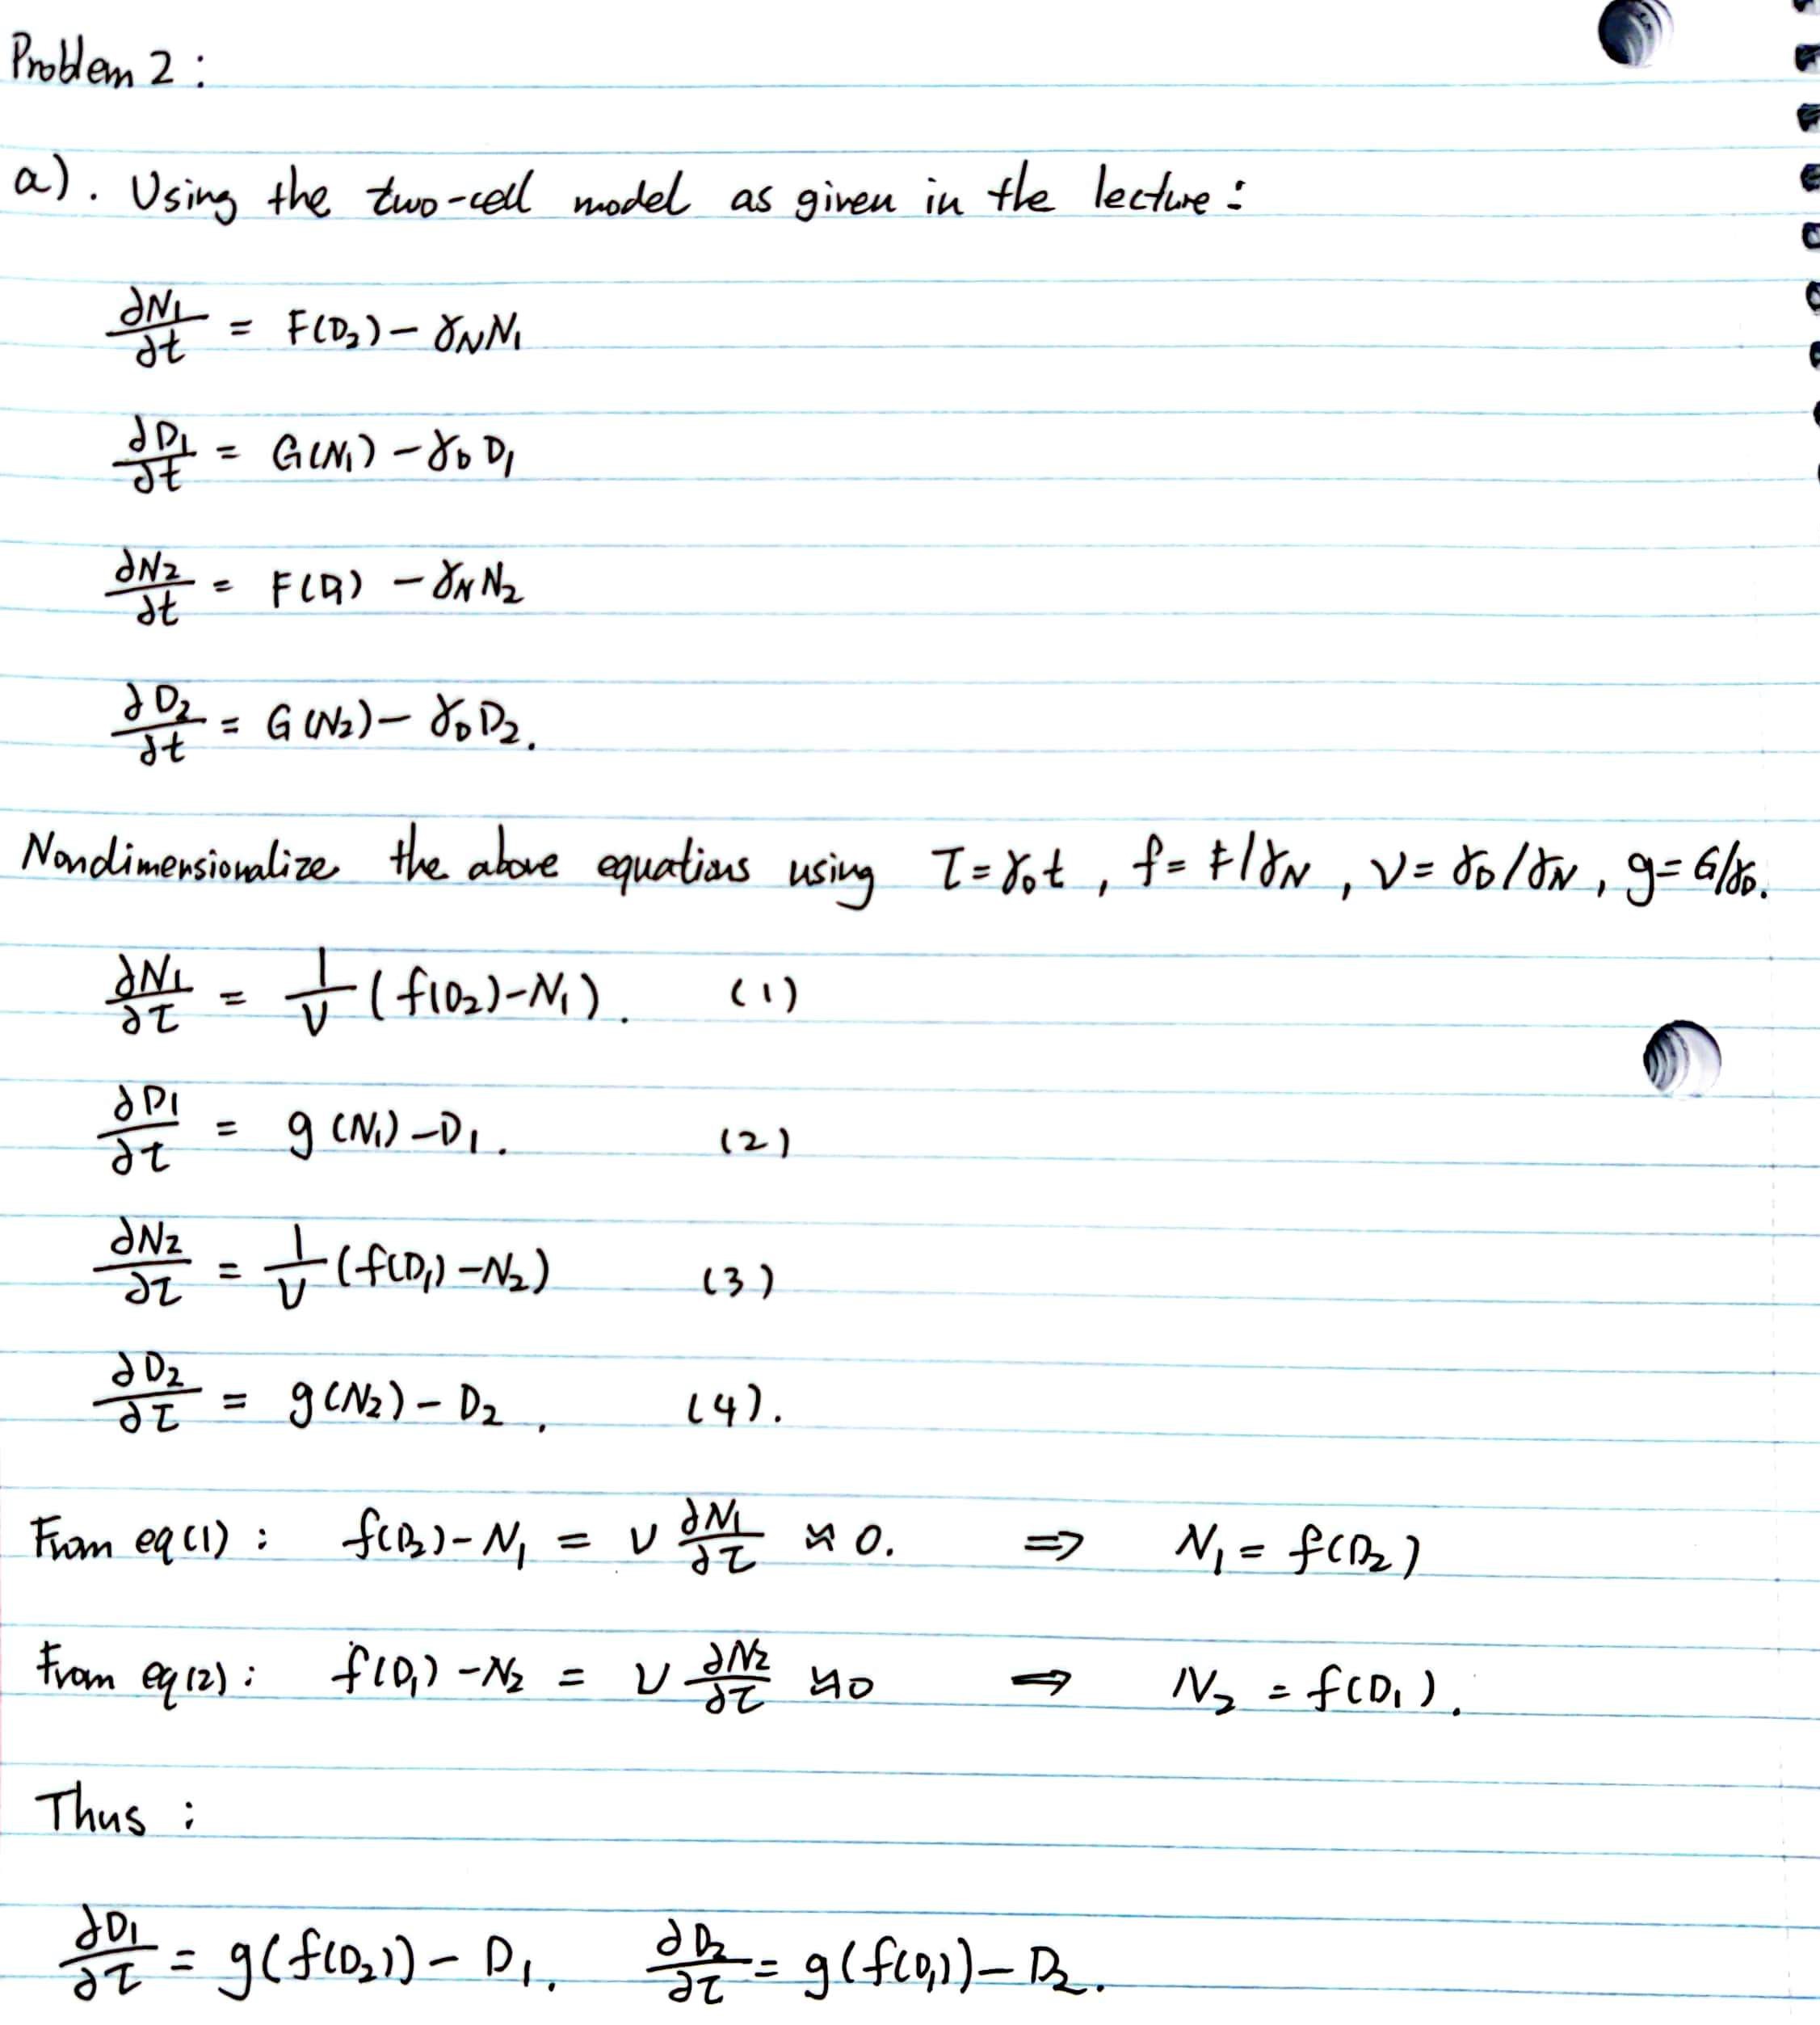 Problem 2 :
a). Using the two-cell model as given in the lecture :
∂N₁/∂t = F(D₂) − γ_N N₁
∂D₁/∂t = G(N₁) − γ_D D₁
∂N₂/∂t = F(D₁) − γ_N N₂
∂D₂/∂t = G(N₂) − γ_D D₂.
Nondimensionalize the above equations using τ = γ_D t , f = F/γ_N , ν = γ_D/γ_N , g = G/γ_D.
∂N₁/∂τ = 1/ν (f(D₂) − N₁). (1)
∂D₁/∂τ = g(N₁) − D₁. (2)
∂N₂/∂τ = 1/ν (f(D₁) − N₂) (3)
∂D₂/∂τ = g(N₂) − D₂. (4).
From eq(1) : f(D₂) − N₁ = ν ∂N₁/∂τ ≈ 0. ⇒ N₁ = f(D₂)
From eq(2) : f(D₁) − N₂ = ν ∂N₂/∂τ ≈ 0 ⇒ N₂ = f(D₁).
Thus :
∂D₁/∂τ = g(f(D₂)) − D₁. ∂D₂/∂τ = g(f(D₁)) − D₂.